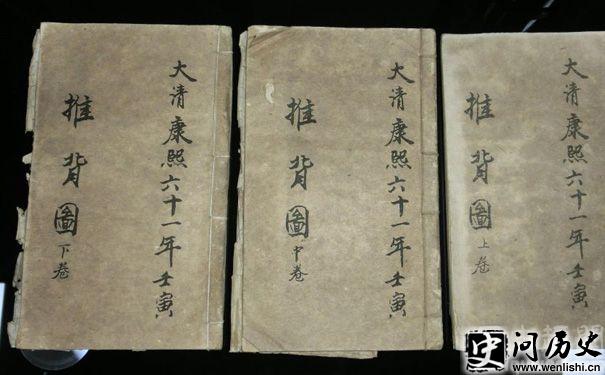 大清康熙六十一年壬寅
推背圖上卷
大清康熙六十一年壬寅
推背圖中卷
大清康熙六十一年壬寅
推背圖下卷
史 问历史
www.wenlishi.cn